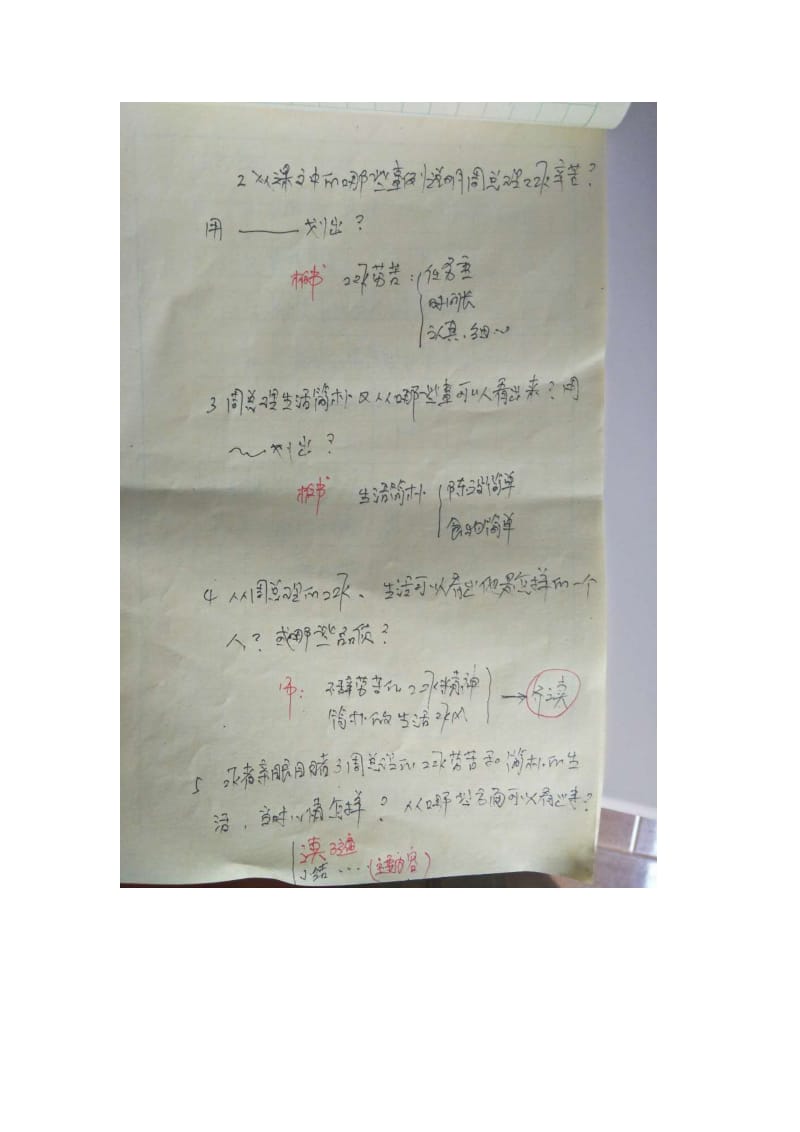 2 从课文中的哪些事例说明周总理工作辛苦?
用 —— 划出?
板书 工作劳苦: 任务重
时间长
认真、细心
3 周总理生活简朴又从哪些事可以看出来?用
~~划出?
板书 生活简朴 陈设简单
食物简单
4 从周总理的工作、生活可以看出他是怎样的一个
人? 或哪些品质?
师: 不辞劳苦的工作精神
简朴的生活作风 → 齐读
5 作者亲眼目睹了周总理的工作劳苦和简朴的生
活,当时心情怎样? 从哪些方面可以看出来?
读
小结 …